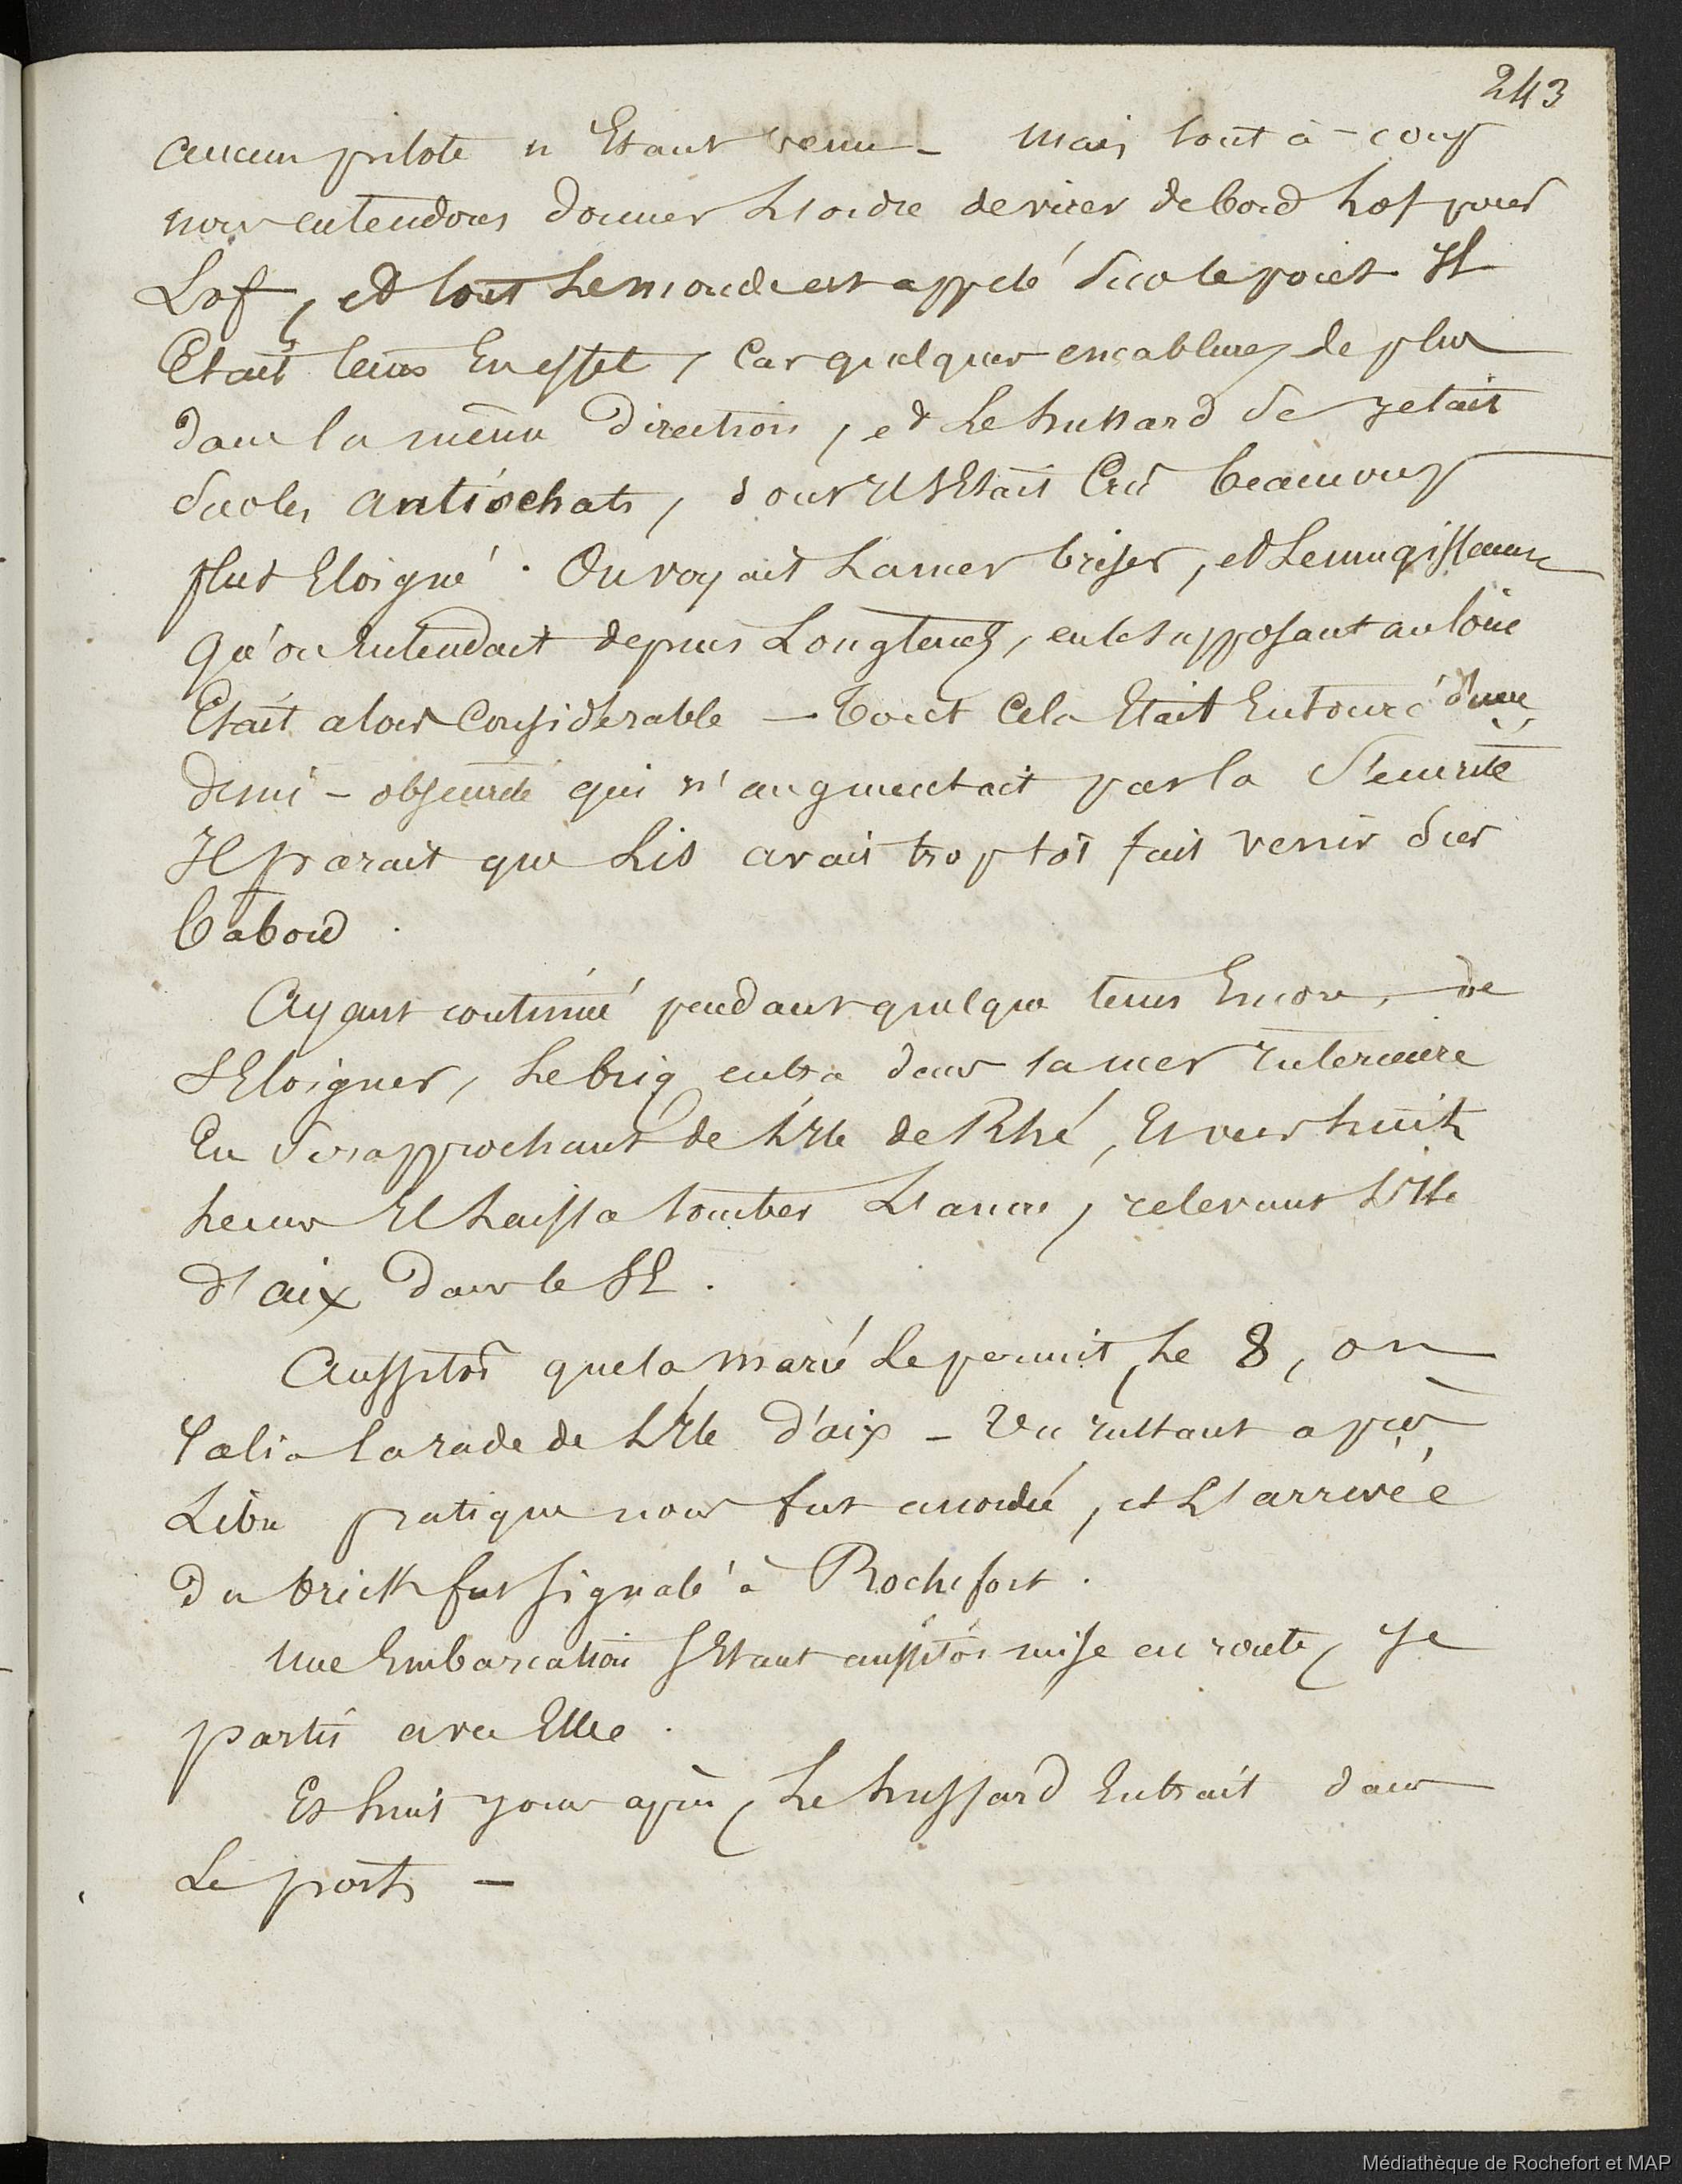 243
aucun pilote n'Etant venu - Mais tout à - coup
nous entendons donner L'ordre de virer de bord Lof pour
Lof, et tout Le monde est appelé Sur le pont Il
Etait tems En effet, Car quelques encablures de plus
dans la même Direction, et Le hussard Se jetait
Sur les antiochats, dont Il S'Etait Cru beaucoup
plus Eloigné. On voyait La mer briser, et Le mugissement
qu'on Entendait depuis Longtems, en le Supposant au loin
Etait alors Considerable - Tout Cela Etait Entouré d'une
demi - obscurité qui n'augmentait pas la Sécurité
Il parait que L'on avait trop tôt fait venir Sur
babord.
Ayant continué pendant quelque tems Encore, de
S'Eloigner, Le brig entra dans la mer Interieure
En Se rapprochant de L'Ile de Rhé, Et vers huit
heures Il Laissa tomber L'ancre, relevant L'Ile
d'aix Dans le SE.
Aussitôt que la maré Le permit, Le 8, on
ralia la rade de L'Ile d'aix - Un instant après
Libre pratique nous fut accordé, et L'arrivée
Du brick fut Signalé à Rochefort.
Une Embarcation S'Etant aussitôt mise en route, Je
partis avec Elle.
Et huit jours après, Le hussard Entrait dans
Le port -
Médiathèque de Rochefort et MAP